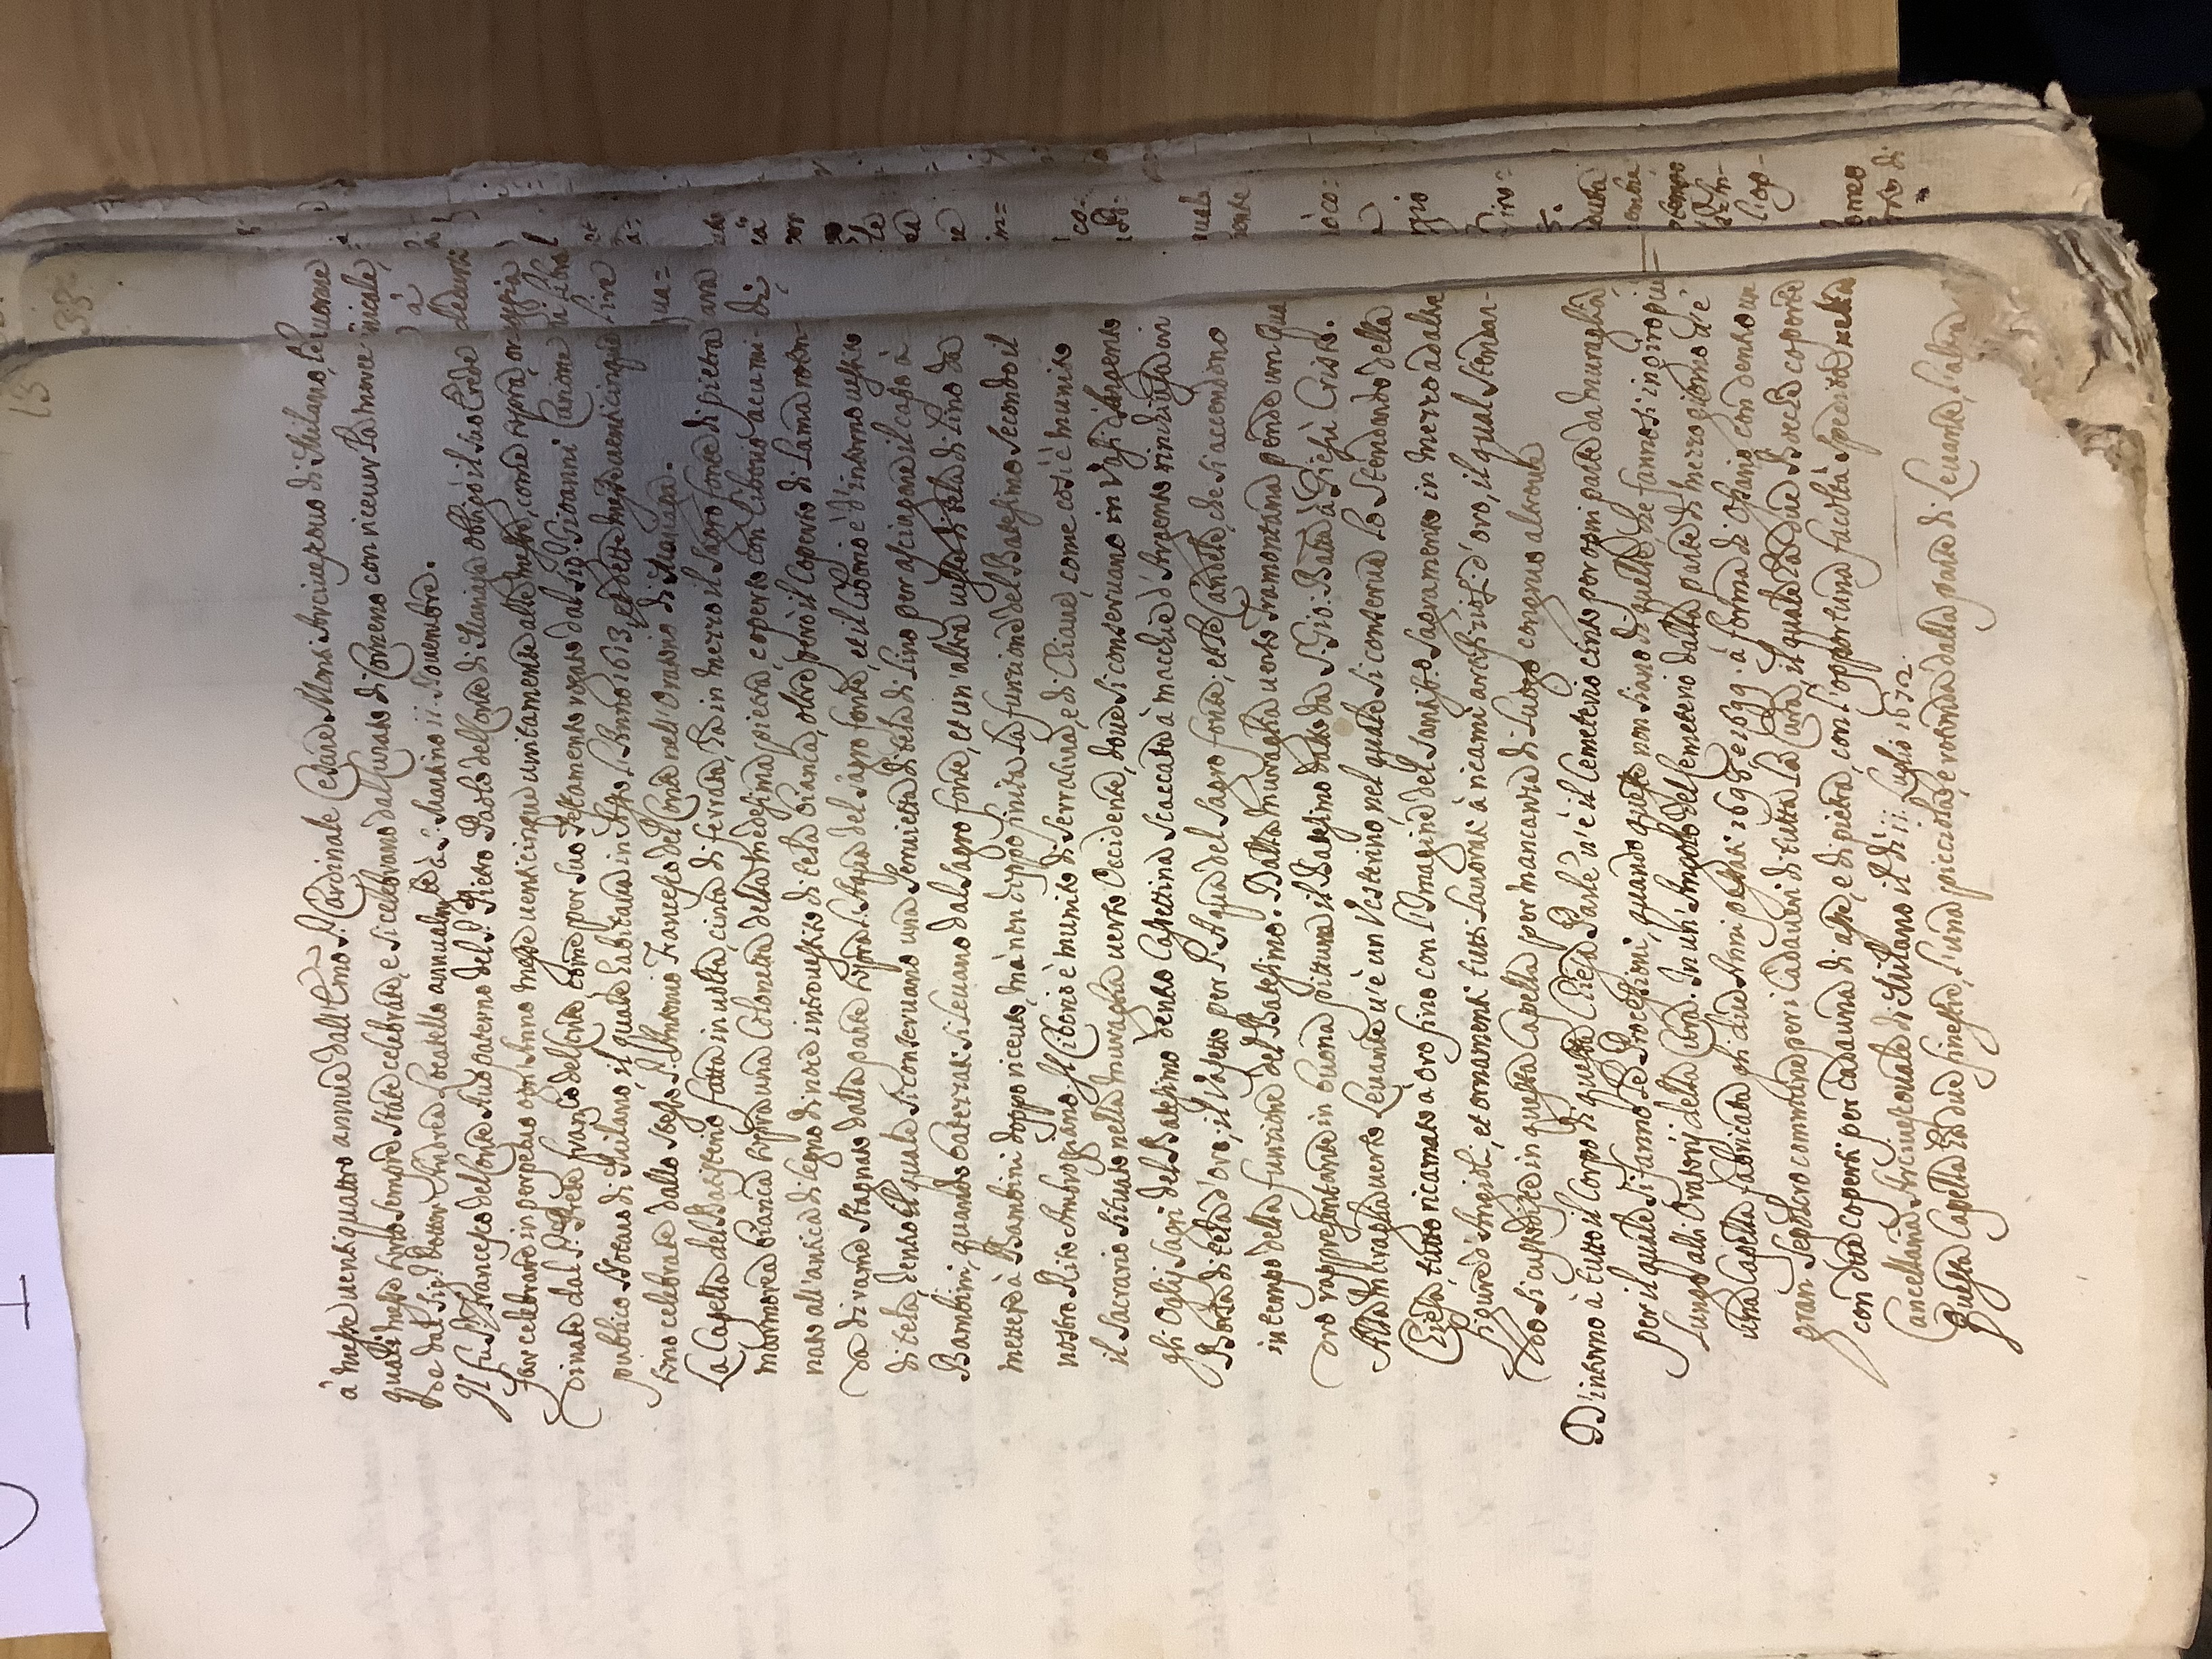 13
33
à messe uentiquatro annue dall'Emo S.r Cardinale Cesare Monti Arciuescouo di Milano, le
quali messe sono sempre state celebrate, e si celebrano dal Curato di Comeno con riceuer la mercè
dal Sig.r Dottor Andrea Locatello annualm.te à S. Martino ii. Nouembre.
Il fu S. Francesco del Conte fù paterno del S. Pietro Paolo del Conte di obligò il suo Erede
far celebrare in perpetuo ogni Anno messe uenticinque unitamente alle messe, come sopra,
dinate dal S. Prete Franco del Conte come per suo testamento rogato dal Sig. Giouanni
publico Notaro di Milano, il quale habitaua in Asso l'Anno 1613, et dette messe uenticinque
sono celebrate dallo stesso S. Antonio Francesco del Conte nell'Oratorio di
La Capella del Battisterio fatta in uolta, cinta di ferrata, hà in mezzo il Sagro fonte di pietra
marmorea bianca sopra una Colonetta della medesima pietra, coperto con Ciborio
nato all'antica di legno di noce intouestito di tela bianca, oltre però il Coperto di Lama
da di rame stagnato dalla parte sopra l'Aqua del sagro fonte, et il Ciborio è d'intorno uestito
di tela, dentro il quale si conseruano una Seruietta di tela di Lino per asciugare il capo à
Bambini, quando Batezzati si leuano dal sagro fonte, et un'altra uesta di tela di Lino da
mettere à Bambini doppo riceuuto, mà non doppo finita la funzione del Batesimo secondo il
nostro Rito Ambrogiano. Il Ciborio è munito di Serratura, e di Chiaue, come così è munito
il Sacrario situato nella muraglia uerso Occidente, doue si conseruano in Vasi d'Argento
gli Oglij Sagri del Batesimo dentro Cassettina à macchie d'Argento
Borsa di tela d'oro, il Vasetto per l'Aqua del Sagro fonte, et le Candele, che si accendono
in tempo della funzione del Batesimo. Dalla muraglia uerso tramontana pende un Qua
dro rappresentante in buona pittura il Batesimo dato da S. Gio: Batta à Giesù Cristo.
Alla muraglia uerso Leuante u'è un Vestirino nel quale si conserua lo Stendardo della
Chiesa, tutto ricamato à oro fino con l'Imagine del Santiss.o Sagramento in mezzo ad altre
figure d'Angioli, et ornamenti tutti lauorati à ricami d'oro, il qual Stendar-
do si custodisce in questa Capella per mancanza di luogo congruo altroue
D'intorno à tutto il Corpo di questa Chiesa Parle u'è il Cemeterio cinto per ogni parte da muraglia,
per il quale si fanno le Processioni, quando queste non siano di quelle, che fannosi in giro più
lungo alli Oratorij della Cura. In un'Angolo del Cemeterio dalla parte di mezzo giorno u'è
una Capella fabricata gli due Anni passati 1698 e 1699. à forma di Ossario con dentro un
gran Sepolcro commune per i Cadaueri di tutta la Cura, il quale hà due Bocche coperte
con due Coperti per cadauna di asse, e di pietra, con l'opportuna facoltà spedita nella
Cancellaria Arciuescouale di Milano il dì ii. Luglio 1672.
Questa Capella hà due finestre, l'una picciola, e rotonda dalla parte di Leuante, l'altra